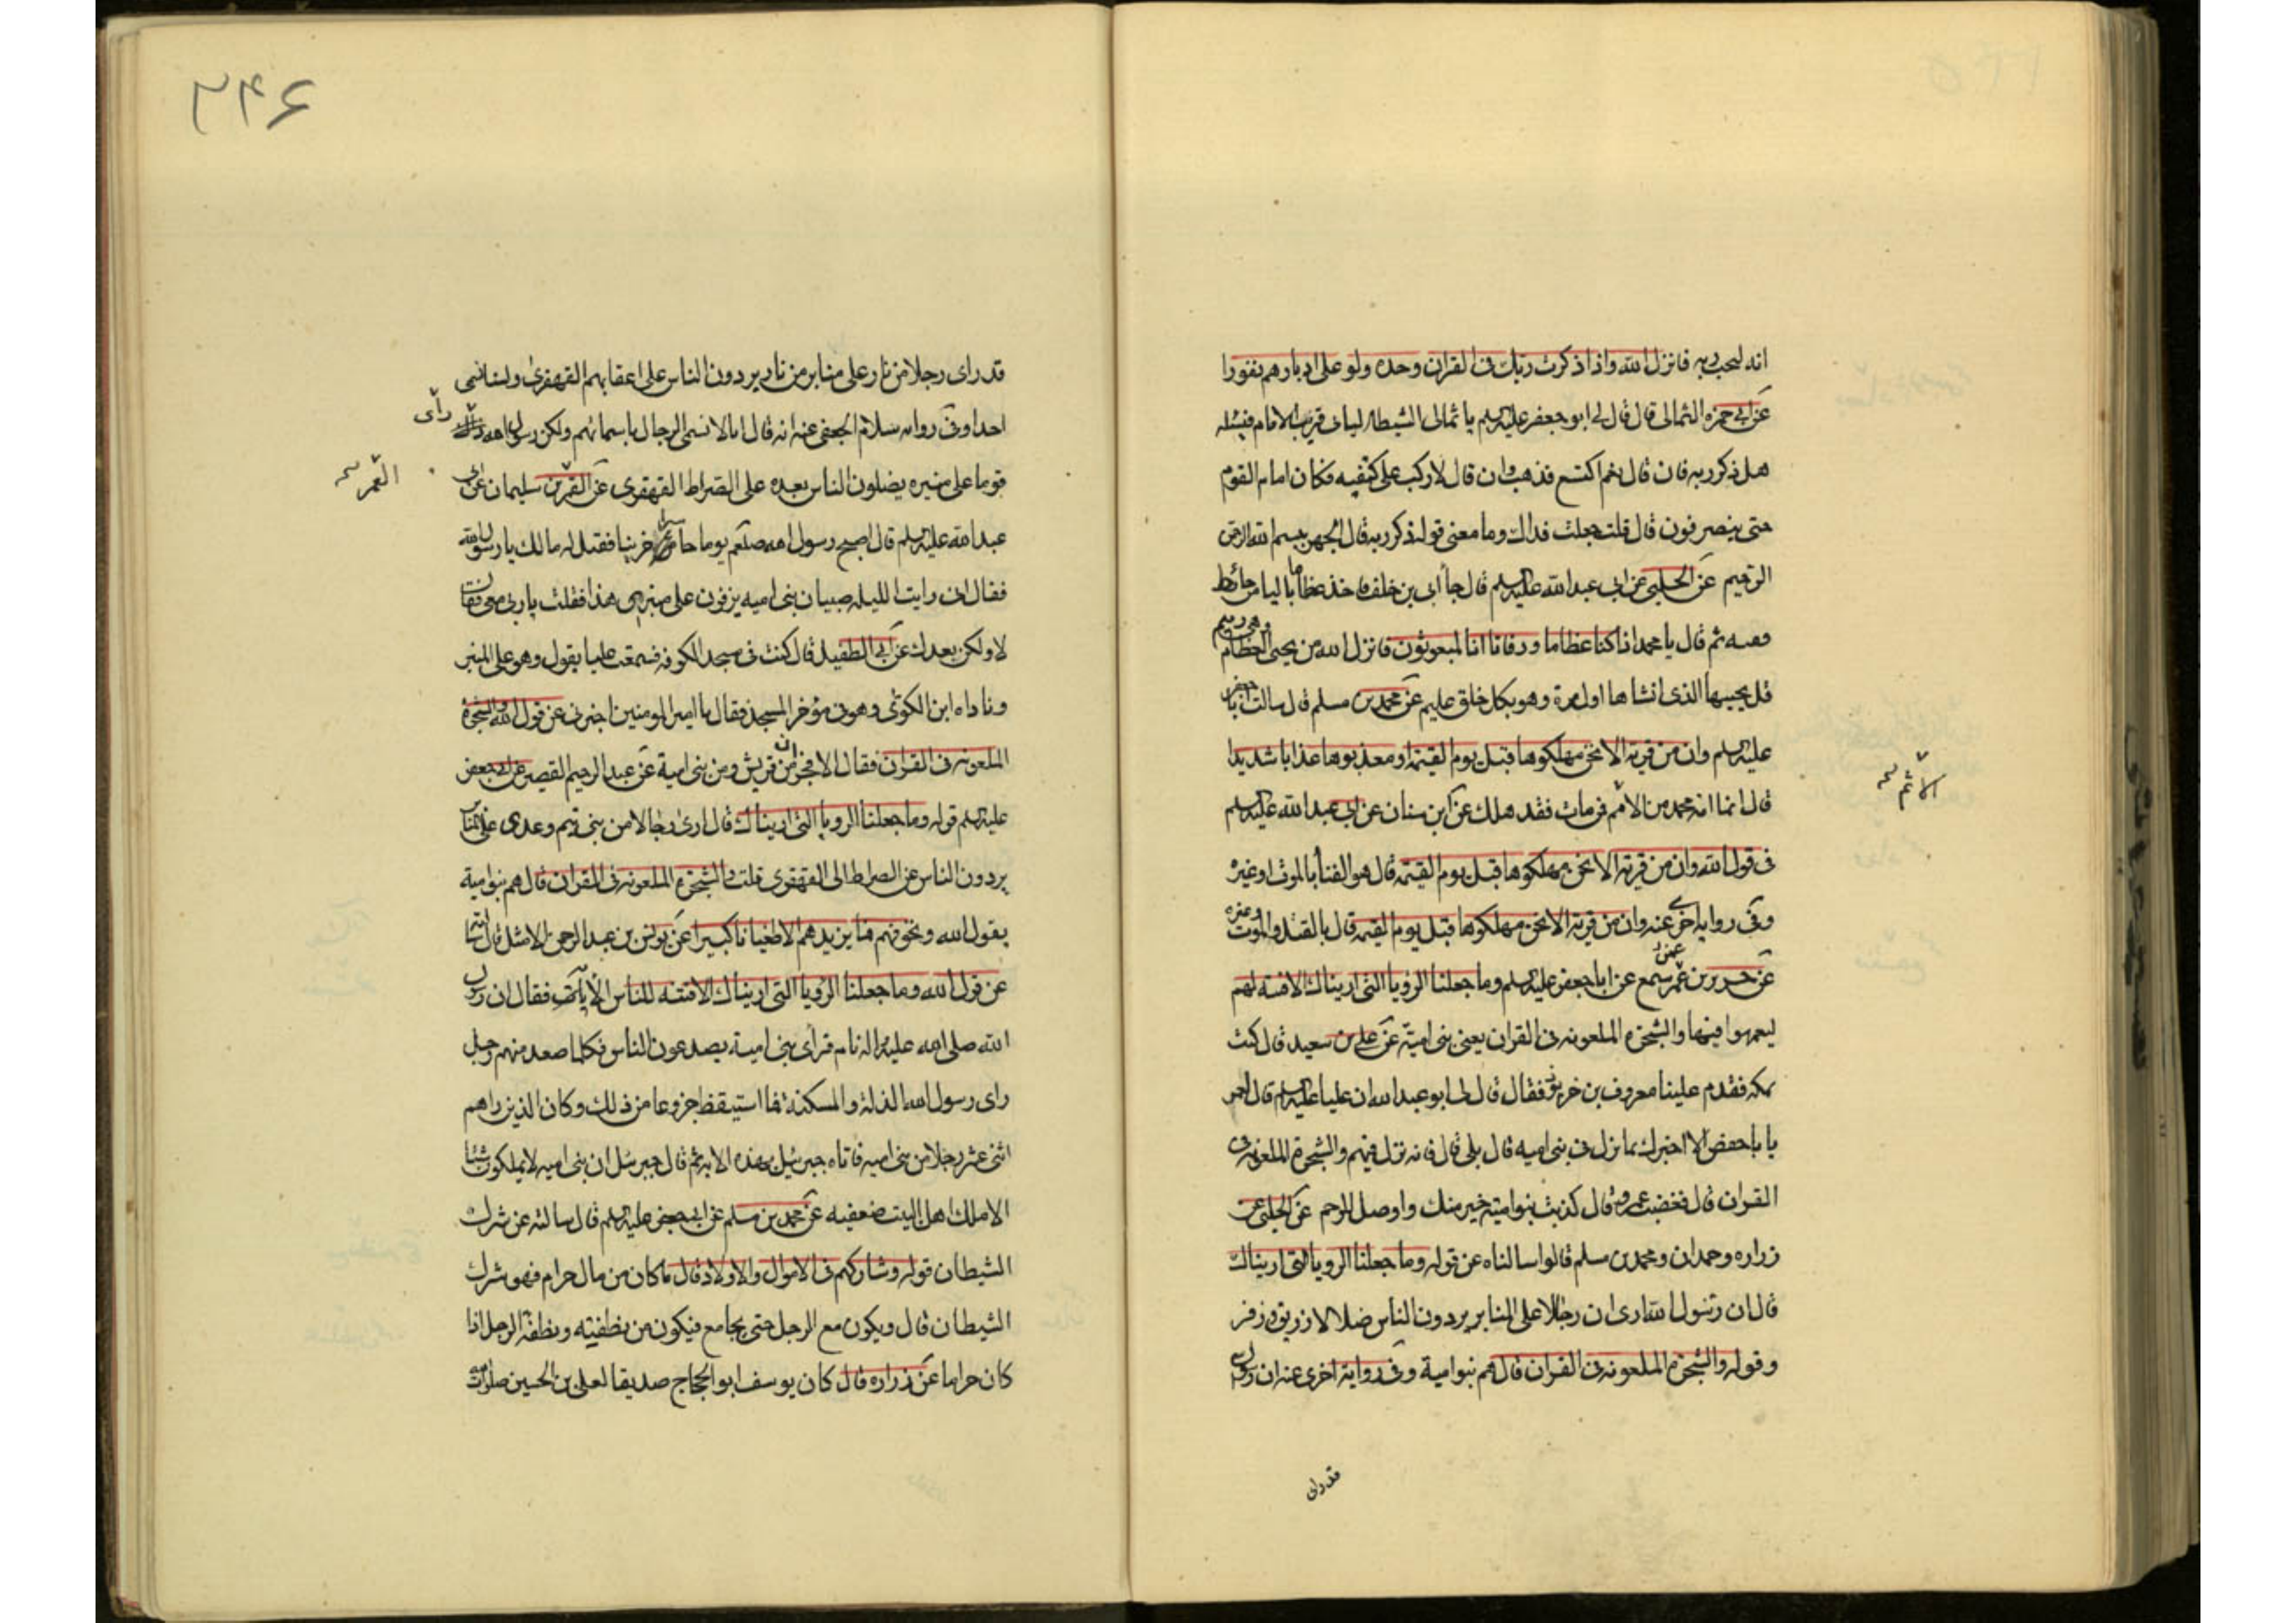 انه ليحب ربه فانزل الله واذا ذكرت ربك في القران وحده ولوا على ادبارهم نفورا
عن ابي حمزه الثمالى قال قال لي ابو جعفر عليه السلم يا ثمالى الشيطان لياتى قرين الامام فيسئله
هل ذكر ربه فان قال نعم اكتسع فذهب وان قال لا ركب على كتفيه فكان امام القوم
حتى ينصرفون قال قلت جعلت فداك وما معنى قوله ذكر ربه قال الجهر ببسم الله الرحمن
الرحيم عن الحلبى عن ابى عبد الله عليه السلم قال جا ابى بن خلف فاخذ عظاما باليا من حائط
ففته ثم قال يا محمد اذا كنا عظاما ورفاتا ائنا لمبعوثون فانزل الله من يحيى العظام وهى رميم
قل يحييها الذى انشاها اول مرة وهو بكل خلق عليم عن محمد بن مسلم قال سالت ابا جعفر
عليه السلم وان من قرية الا نحن مهلكوها قبل يوم القيمة او معذبوها عذابا شديدا
قال انما امه محمد من الامم فمن مات فقد هلك عن ابن سنان عن ابى عبد الله عليه السلم
فى قول الله وان من قرية الا نحن مهلكوها قبل يوم القيمة قال هو الفنا بالموت او غيره
وفى روايه اخرى عنه وان من قرية الا نحن مهلكوها قبل يوم القيمه قال بالقتل والموت وغيره
عن حريز عمن سمع عن ابا جعفر عليه السلم وما جعلنا الرويا التى اريناك الا فتنه لهم
ليعمهوا فيها والشجره الملعونه فى القران يعنى بنى امية عن على بن سعيد قال كنت
بمكه فقدم علينا معروف بن خربوذ فقال قال لى ابو عبد الله ان عليا عليه السلم قال لعمر
يا با حفص الا اخبرك بما نزل فى بنى اميه قال بلى قال فانه نزل فيهم والشجرة الملعونه فى
القران قال فغضب عمر وقال كذبت بنو امية خير منك واوصل للرحم عن الحلبى عن
زراره وحمران ومحمد بن مسلم قالوا سالناه عن قوله وما جعلنا الرويا التى اريناك
قال ان رسول الله ارى ان رجالا على المنابر يردون الناس ضلالا زريق وزفر
وقوله والشجرة الملعونه فى القران قال هم بنوامية وفى رواية اخرى عنه ان رسول الله
قد راى
الامم
٣٤٦
قد راى رجلا من نار على منابر من نار يردون الناس على اعقابهم القهقرى ولسنا نسمى
احدا وفى روايه سلام الجعفى عنه انه قال انا لا نسمى الرجال باسمائهم ولكن رسول الله راى
قوما على منبره يضلون الناس بعده على الصراط القهقرى عن القمر بن سليمان عن ابى
عبد الله عليه السلم قال اصبح رسول الله صلعم يوما حاسرا حزينا فقيل له مالك يا رسول الله
فقال انى رايت الليله صبيان بنى اميه يرقون على منبرى هذا فقلت يا رب معى فقال
لا ولكن بعدك عن ابى الطفيل قال كنت فى مسجد الكوفه فسمعت عليا يقول وهو على المنبر
وناداه ابن الكوى وهو فى مؤخر المسجد فقال يا امير المومنين اخبرنى عن قول الله والشجرة
الملعونه فى القران فقال الافجران من قريش ومن بنى امية عن عبد الرحيم القصير عن ابى جعفر
عليه السلم قوله وما جعلنا الرويا التى اريناك قال ارى رجالا من بنى تيم وعدى على المنابر
يردون الناس عن الصراط الى القهقرى قلت والشجرة الملعونه فى القران قال هم بنو امية
يقول الله ونخوفهم فما يزيدهم الا طغيانا كبيرا عن يونس بن عبد الرحمن الاشل قال سالته
عن قول الله وما جعلنا الرؤيا التى اريناك الا فتنه للناس الاية فقال ان رسول
الله صلى الله عليه واله نام فراى بنى امية يصدعون الناس فكلما صعد منهم رجل
راى رسول الله الذلة والمسكنة فاستيقظ جزوعا من ذلك وكان الذين راهم
اثنى عشر رجلا من بنى اميه فاتاه جبرئيل بهذه الايه ثم قال جبرئيل ان بنى اميه لا يملكون شيئا
الا ملك اهل البيت ضعفيه عن محمد بن مسلم عن ابى جعفر عليه السلم قال سالته عن شرك
الشيطان قوله وشاركهم فى الاموال والاولاد قال ما كان من مال حرام فهو شرك
الشيطان قال ويكون مع الرجل حتى يجامع فيكون من نطفته ونطفة الرجل اذا
كان حراما عن زراره قال كان يوسف ابو الحجاج صديقا لعلى بن الحسين صلوات الله
راى
القمر